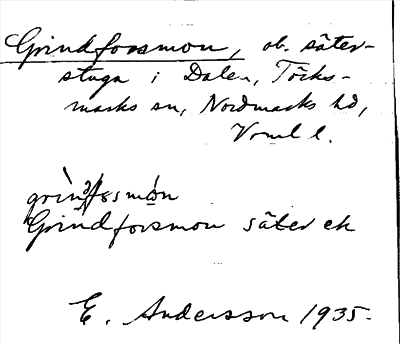 Grindforsmon, ob. säter-
stuga i Dalen, Töcks-
marks sn, Nordmarks hd,
Vrml l.
Grindforsmon säter ek
E. Andersson 1935.